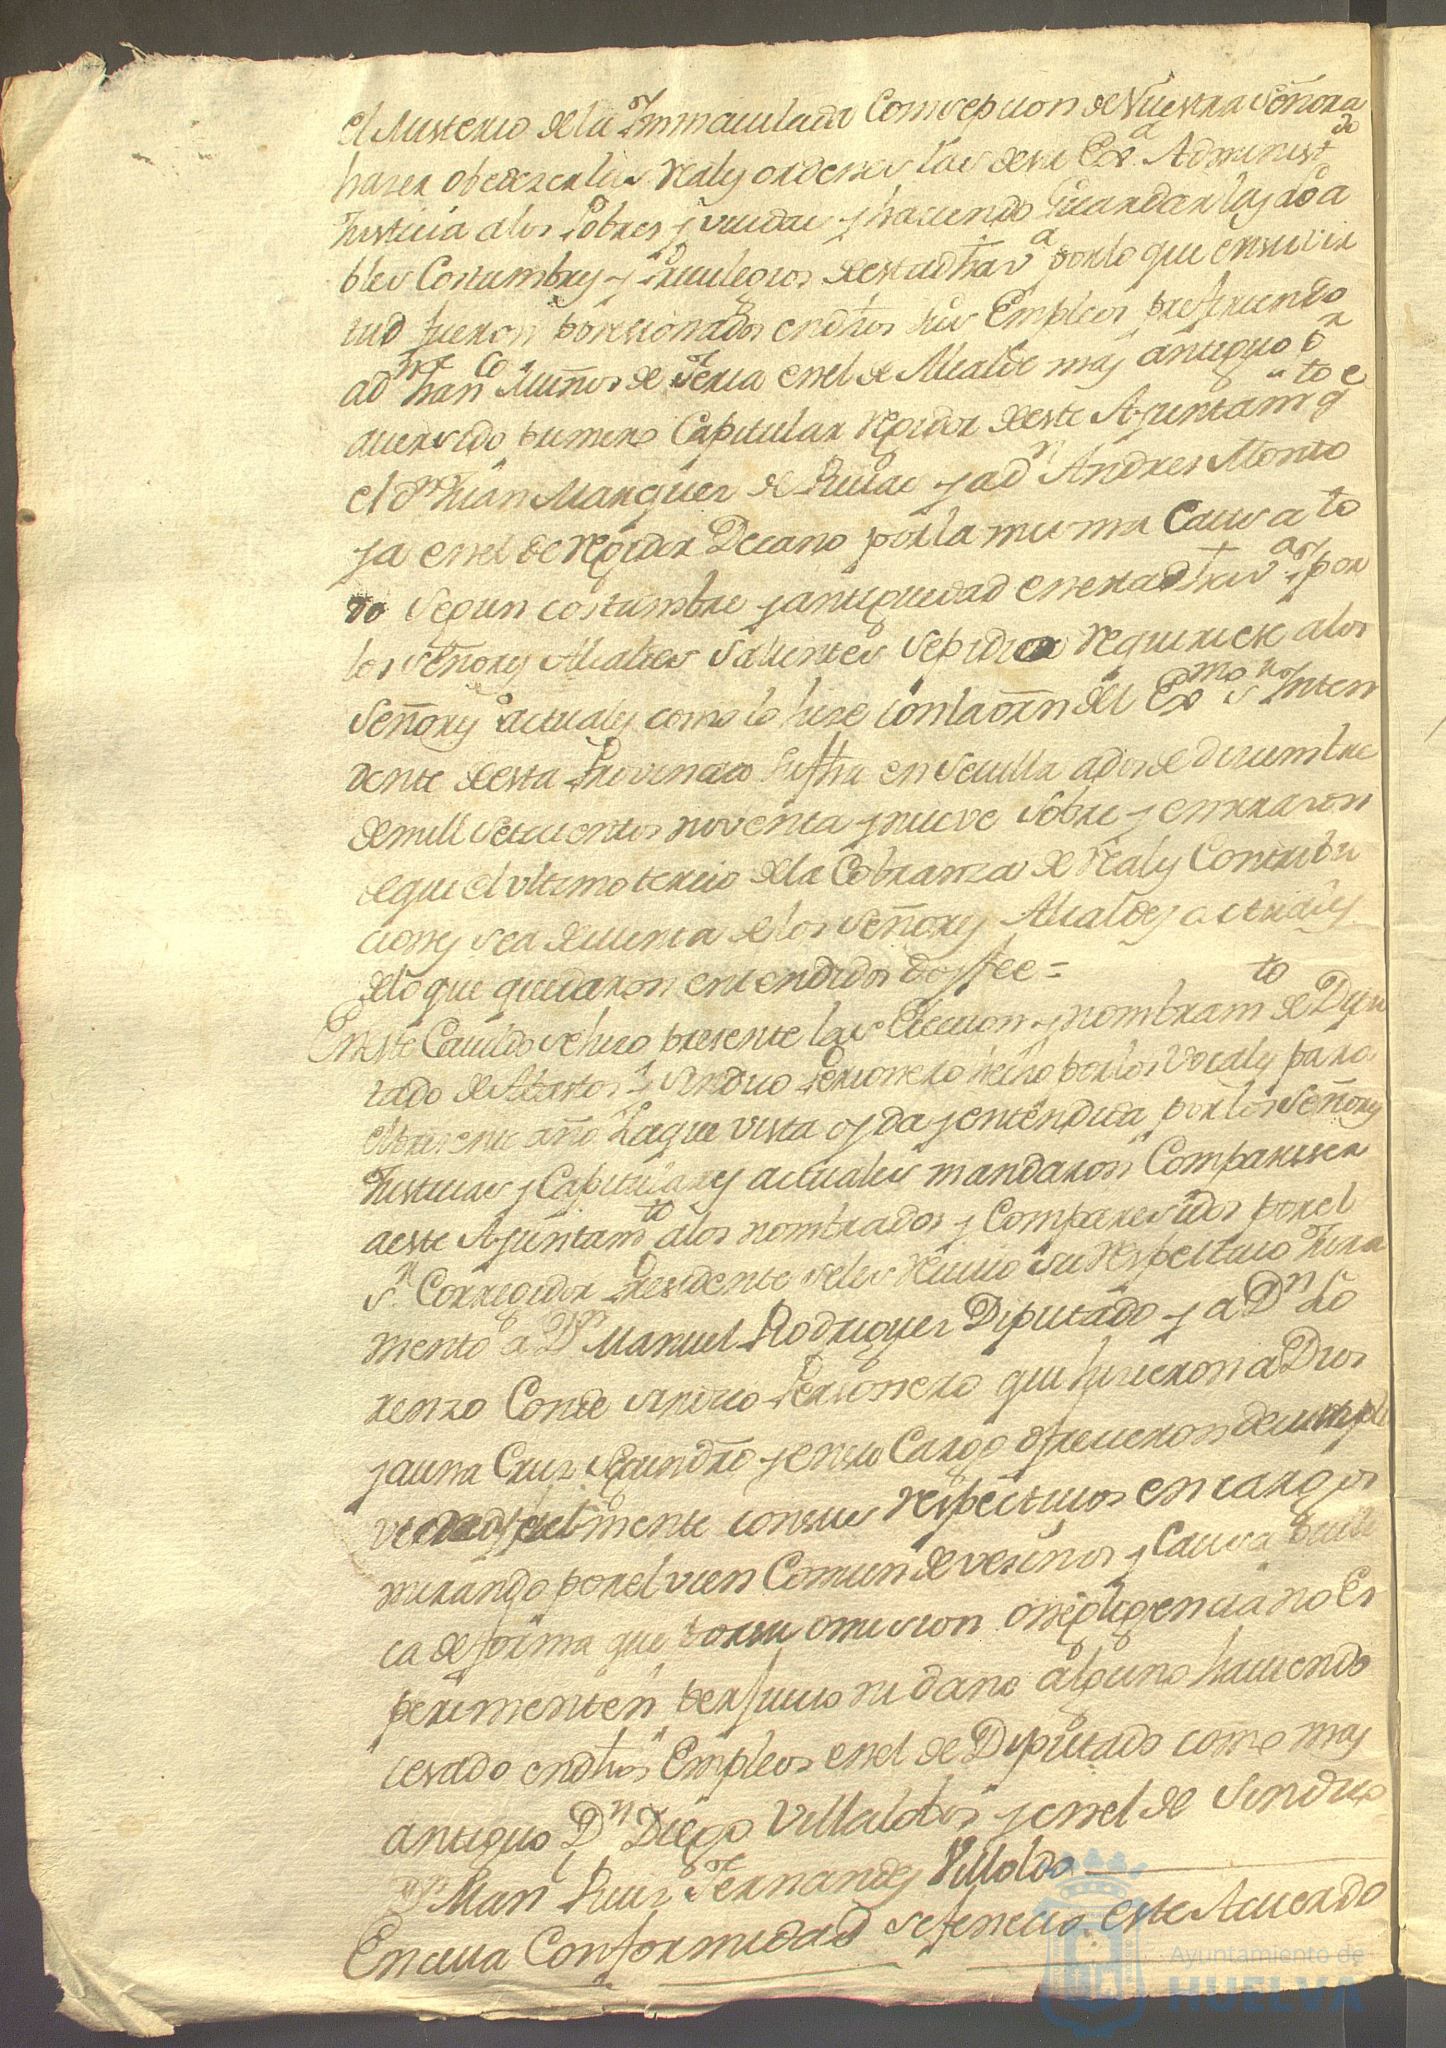 el Misterio de la Immaculada Comsepcion de Nuestra Señora
haser obedeser las Reales ordenes las de su Exª Administdo
Justicia a los Pobres y viudas y haciendo Guardar las loa
bles Costumbres y Privilegios de esta dha vª por lo que en su vir
tud fueron posesionados en dhos sus Empleos prefiriendo
a dn Franco Muños de Feria en el de Alcalde mas antiguo
aver sido primero Capitular Rexidor de este Ayuntamto qe
el dn Juan Marquez de Rivas y a dn Andres Monto
ya en el de Rexidor Decano por la misma Causa to
do segun costumbre y antiguedad en esta dha vª y por
los Señores Alcaldes salientes se pidio Requiriese a los
Señores actuales como lo hise con la orn del Exmo Sor Inten
dente de esta Provincia su fha en Sevilla a dos de disiembre
de mill setecientos noventa y nueve sobre y en rrason
de que el ultimo tercio de la Cobranza de Reales Contribu
ciones sea de cuenta de los Señores Alcaldes actuales
de lo que quedaron entendidos doy fee =
En este Cavildo se hiso presente las Eleccion y nombramto de Dipu
tado de Abastos y Sindico Personero hecho por los Vocales para
el presente año La que vista oyda y entendida por los Señores
Justicias y Capitulares actuales mandaron Comparescer
a este Ayuntamto a los nombrados y Comparesidos por el
Sr Corregidor Presidente se les resivio su Respectivo Jura
mento a Dn Manuel Rodriguez Diputado y a Dn Lo
renzo Conde Sindico Personero que hisieron a Dios
y a una Cruz segun dro y en su Cargo ofrecieron de cumplir
fielmente con sus Respectivos encargos
mirando por el vien Comun de vesinos y Causa Publi
ca de forma que por su omision o negligencia no Es
perimenten perjuicio ni dano alguno haciendo
cesado en dhos Empleos en el de Diputado como mas
antiguo Dn Diego Villalobos y en el de Sindico
Dn Man Ruiz Fernandes Villoldo
En cuia Conformidad se fenecio este Acuerdo
Ayuntamiento de
HUELVA